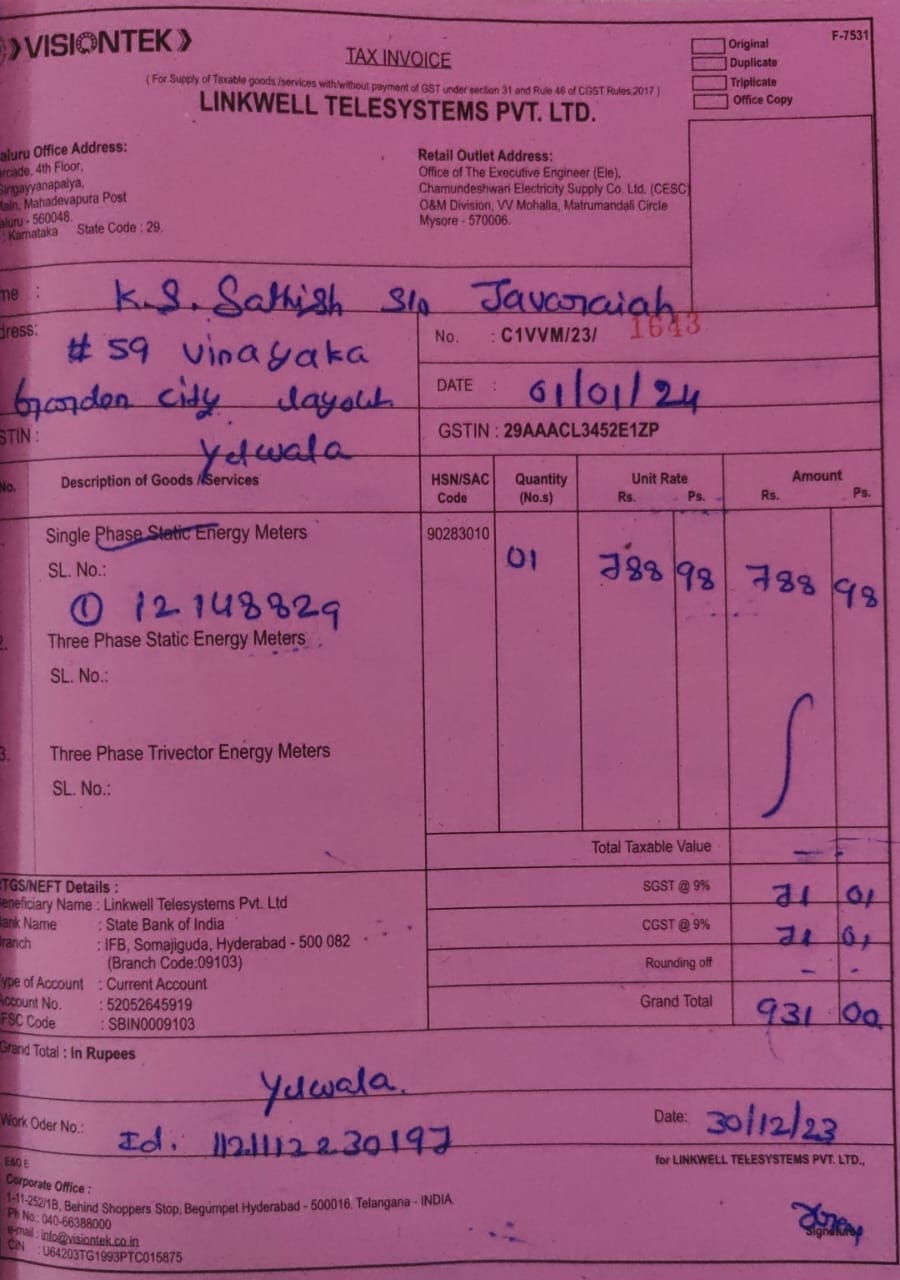 VISIONTEK
TAX INVOICE
F-7531
Original
Duplicate
Triplicate
Office Copy
( For Supply of Taxable goods /services with/without payment of GST under section 31 and Rule 46 of CGST Rules,2017 )
LINKWELL TELESYSTEMS PVT. LTD.
aluru Office Address:
rcade, 4th Floor,
Singayyanapalya,
Main, Mahadevapura Post
aluru - 560048.
: Karnataka State Code : 29.
Retail Outlet Address:
Office of The Executive Engineer (Ele),
Chamundeshwari Electricity Supply Co. Ltd. (CESC)
O&M Division, VV Mohalla, Matrumandali Circle
Mysore - 570006.
me : K.S. Sathish S/o Javaraiah
dress: # 59 Vinayaka
Garden city layout
Yelwala
STIN :
No. : C1VVM/23/ 1643
DATE : 01/01/24
GSTIN : 29AAACL3452E1ZP
No. Description of Goods / Services HSN/SAC Code Quantity (No.s) Unit Rate Rs. Ps. Amount Rs. Ps.
Single Phase Static Energy Meters 90283010 01 788 98 788 98
SL. No.:
① 12148829
2. Three Phase Static Energy Meters
SL. No.:
3. Three Phase Trivector Energy Meters
SL. No.:
Total Taxable Value — -
SGST @ 9% 71 01
CGST @ 9% 71 01
Rounding off - -
Grand Total 931 00
TGS/NEFT Details :
eneficiary Name : Linkwell Telesystems Pvt. Ltd
ank Name : State Bank of India
ranch : IFB, Somajiguda, Hyderabad - 500 082
(Branch Code:09103)
ype of Account : Current Account
Account No. : 52052645919
FSC Code : SBIN0009103
Grand Total : In Rupees
Yelwala.
Work Oder No.: Id. 1121112230197
Date: 30/12/23
E&O E
for LINKWELL TELESYSTEMS PVT. LTD.,
Corporate Office :
1-11-252/1B, Behind Shoppers Stop, Begumpet Hyderabad - 500016. Telangana - INDIA
Ph No.: 040-66388000
e-mail : info@visiontek.co.in
CIN : U64203TG1993PTC015875
Signature